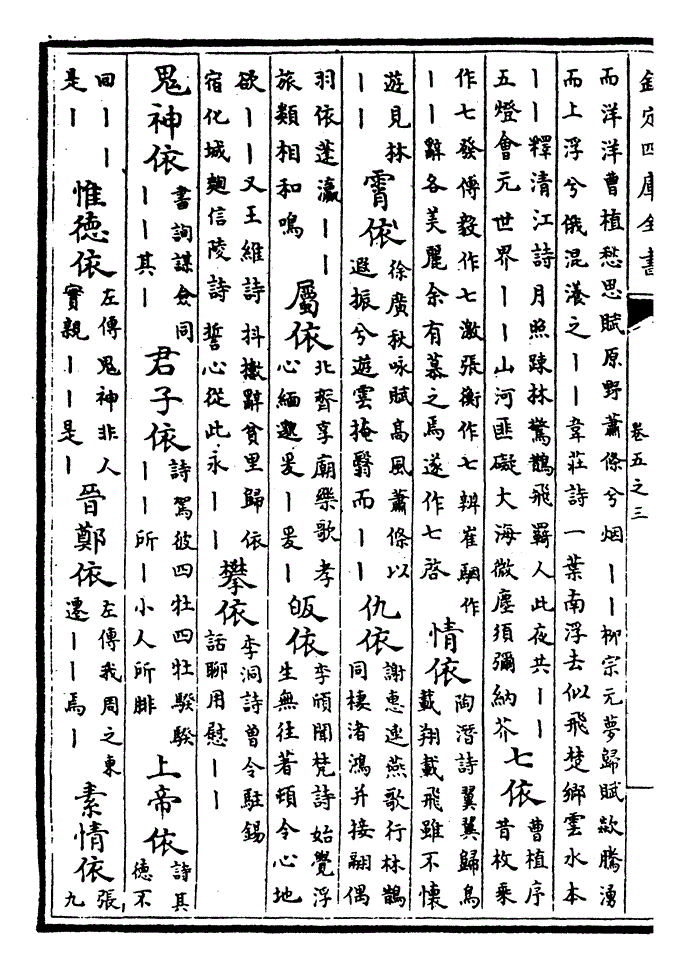 欽定四庫全書
卷五之三
而洋洋曹植愁思賦原野蕭條兮烟丨丨柳宗元夢歸賦欻騰湧
而上浮兮俄滉瀁之丨丨韋莊詩一葉南浮去似飛楚鄉雲水本
丨丨釋清江詩月照疎林驚鵲飛羇人此夜共丨丨
五燈會元世界丨丨山河匪礙大海微塵須彌納芥
七依
曹植序
昔枚乗
作七發傅毅作七激張衡作七辨崔駰作
丨丨辭各美麗余有慕之焉遂作七啓
情依
陶潛詩翼翼歸鳥
載翔載飛雖不懷
遊見林
丨丨
霄依
徐廣秋咏賦高風蕭條以
遐振兮遊雲掩翳而丨丨
仇依
謝惠連燕歌行林鵲
同棲渚鴻并接翮偶
羽依蓬瀛丨丨
旅類相和鳴
屬依
北齊享廟樂歌孝
心緬邈爰丨爰丨
皈依
李頎聞梵詩始覺浮
生無住著頓令心地
欲丨丨又王維詩抖擻辭貧里歸依
宿化城麹信陵詩誓心從此永丨丨
攀依
李洞詩曾令駐錫
話聊用慰丨丨
鬼神依
書詢謀僉同
丨丨其丨
君子依
詩駕彼四牡四牡騤騤
丨丨所丨小人所腓
上帝依
詩其
徳不
回丨丨
是丨
惟徳依
左傳鬼神非人
實親丨丨是丨
晉鄭依
左傳我周之東
遷丨丨焉丨
素情依
張
九